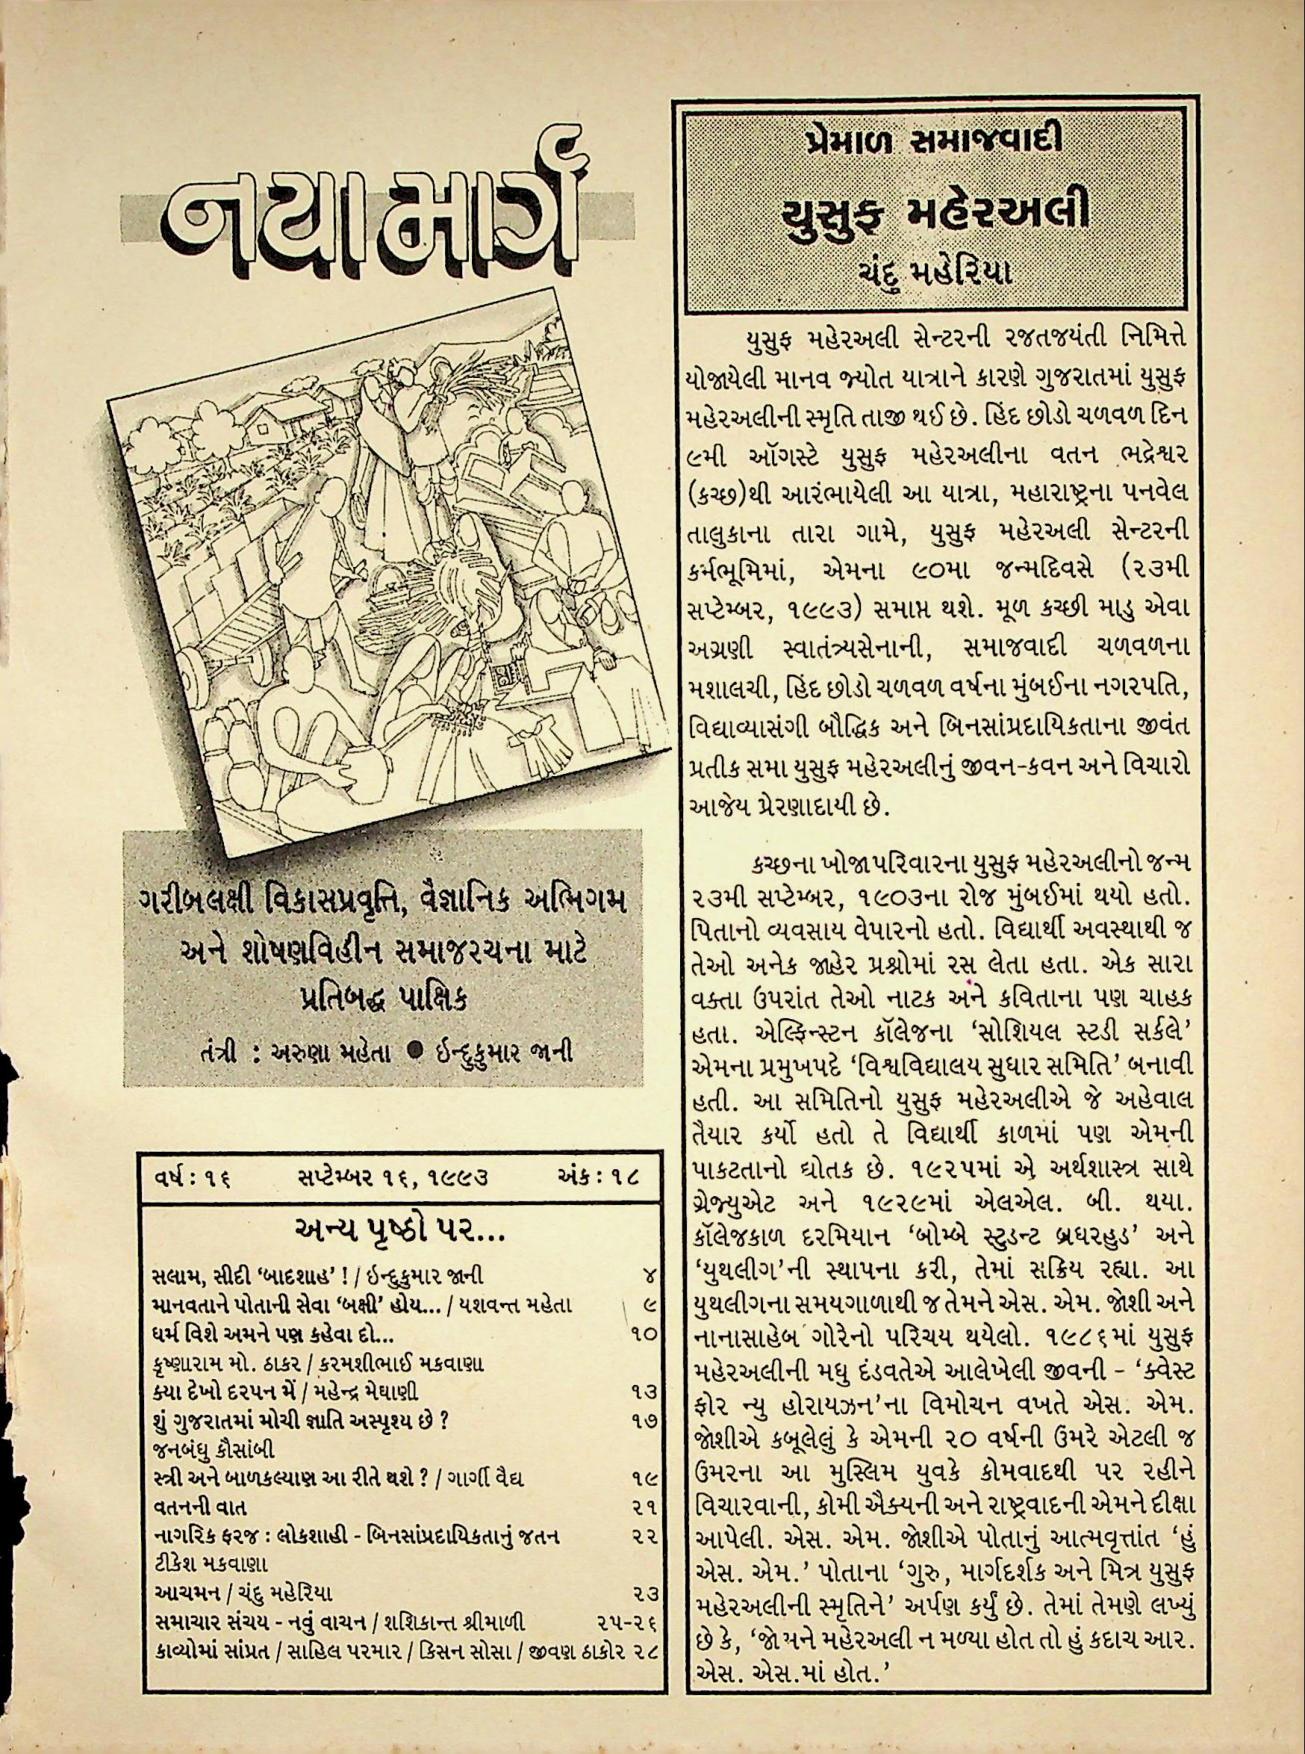 નયા માર્ગ
ગરીબલક્ષી વિકાસપ્રવૃત્તિ, વૈજ્ઞાનિક અભિગમ
અને શોષણવિહીન સમાજરચના માટે
પ્રતિબદ્ધ પાક્ષિક
તંત્રી : અરુણા મહેતા ● ઇન્દુકુમાર જાની
વર્ષ : ૧૬ સપ્ટેમ્બર ૧૬, ૧૯૯૩ અંક : ૧૮
અન્ય પૃષ્ઠો પર...
સલામ, સીદી ‘બાદશાહ’ ! / ઇન્દુકુમાર જાની ૪
માનવતાને પોતાની સેવા ‘બક્ષી’ હોય... / યશવન્ત મહેતા ૯
ધર્મ વિશે અમને પણ કહેવા દો... ૧૦
કૃષ્ણારામ મો. ઠાકર / કરમશીભાઈ મકવાણા
ક્યા દેખો દરપન મેં / મહેન્દ્ર મેઘાણી ૧૩
શું ગુજરાતમાં મોચી જ્ઞાતિ અસ્પૃશ્ય છે ? ૧૭
જનબંધુ કૌસાંબી
સ્ત્રી અને બાળકલ્યાણ આ રીતે થશે ? / ગાર્ગી વૈદ્ય ૧૯
વતનની વાત ૨૧
નાગરિક ફરજ : લોકશાહી - બિનસાંપ્રદાયિકતાનું જતન ૨૨
ટીકેશ મકવાણા
આચમન / ચંદુ મહેરિયા ૨૩
સમાચાર સંચય - નવું વાચન / શશિકાન્ત શ્રીમાળી ૨૫-૨૬
કાવ્યોમાં સાંપ્રત / સાહિલ પરમાર / કિસન સોસા / જીવણ ઠાકોર ૨૮
પ્રેમાળ સમાજવાદી
યુસુફ મહેરઅલી
ચંદુ મહેરિયા
યુસુફ મહેરઅલી સેન્ટરની રજતજયંતી નિમિત્તે
યોજાયેલી માનવ જ્યોત યાત્રાને કારણે ગુજરાતમાં યુસુફ
મહેરઅલીની સ્મૃતિ તાજી થઈ છે. હિંદ છોડો ચળવળ દિન
૯મી ઑગસ્ટે યુસુફ મહેરઅલીના વતન ભદ્રેશ્વર
(કચ્છ)થી આરંભાયેલી આ યાત્રા, મહારાષ્ટ્રના પનવેલ
તાલુકાના તારા ગામે, યુસુફ મહેરઅલી સેન્ટરની
કર્મભૂમિમાં, એમના ૯૦મા જન્મદિવસે (૨૩મી
સપ્ટેમ્બર, ૧૯૯૩) સમાપ્ત થશે. મૂળ કચ્છી માડુ એવા
અગ્રણી સ્વાતંત્ર્યસેનાની, સમાજવાદી ચળવળના
મશાલચી, હિંદ છોડો ચળવળ વર્ષના મુંબઈના નગરપતિ,
વિદ્યાવ્યાસંગી બૌદ્ધિક અને બિનસાંપ્રદાયિકતાના જીવંત
પ્રતીક સમા યુસુફ મહેરઅલીનું જીવન-કવન અને વિચારો
આજેય પ્રેરણાદાયી છે.
કચ્છના ખોજા પરિવારના યુસુફ મહેરઅલીનો જન્મ
૨૩મી સપ્ટેમ્બર, ૧૯૦૩ના રોજ મુંબઈમાં થયો હતો.
પિતાનો વ્યવસાય વેપારનો હતો. વિદ્યાર્થી અવસ્થાથી જ
તેઓ અનેક જાહેર પ્રશ્નોમાં રસ લેતા હતા. એક સારા
વક્તા ઉપરાંત તેઓ નાટક અને કવિતાના પણ ચાહક
હતા. એલ્ફિન્સ્ટન કૉલેજના ‘સોશિયલ સ્ટડી સર્કલે’
એમના પ્રમુખપદે ‘વિશ્વવિદ્યાલય સુધાર સમિતિ’ બનાવી
હતી. આ સમિતિનો યુસુફ મહેરઅલીએ જે અહેવાલ
તૈયાર કર્યો હતો તે વિદ્યાર્થી કાળમાં પણ એમની
પાકટતાનો દ્યોતક છે. ૧૯૨૫માં એ અર્થશાસ્ત્ર સાથે
ગ્રેજ્યુએટ અને ૧૯૨૯માં એલએલ. બી. થયા.
કૉલેજકાળ દરમિયાન ‘બોમ્બે સ્ટુડન્ટ બ્રધરહુડ’ અને
‘યુથલીગ’ની સ્થાપના કરી, તેમાં સક્રિય રહ્યા. આ
યુથલીગના સમયગાળાથી જ તેમને એસ. એમ. જોશી અને
નાનાસાહેબ ગોરેનો પરિચય થયેલો. ૧૯૮૬માં યુસુફ
મહેરઅલીની મધુ દંડવતેએ આલેખેલી જીવની - ‘ક્વેસ્ટ
ફોર ન્યુ હોરાયઝન’ના વિમોચન વખતે એસ. એમ.
જોશીએ કબૂલેલું કે એમની ૨૦ વર્ષની ઉમરે એટલી જ
ઉમરના આ મુસ્લિમ યુવકે કોમવાદથી પર રહીને
વિચારવાની, કોમી ઐક્યની અને રાષ્ટ્રવાદની એમને દીક્ષા
આપેલી. એસ. એમ. જોશીએ પોતાનું આત્મવૃત્તાંત ‘હું
એસ. એમ.’ પોતાના ‘ગુરુ, માર્ગદર્શક અને મિત્ર યુસુફ
મહેરઅલીની સ્મૃતિને’ અર્પણ કર્યું છે. તેમાં તેમણે લખ્યું
છે કે, ‘જો મને મહેરઅલી ન મળ્યા હોત તો હું કદાચ આર.
એસ. એસ.માં હોત.’